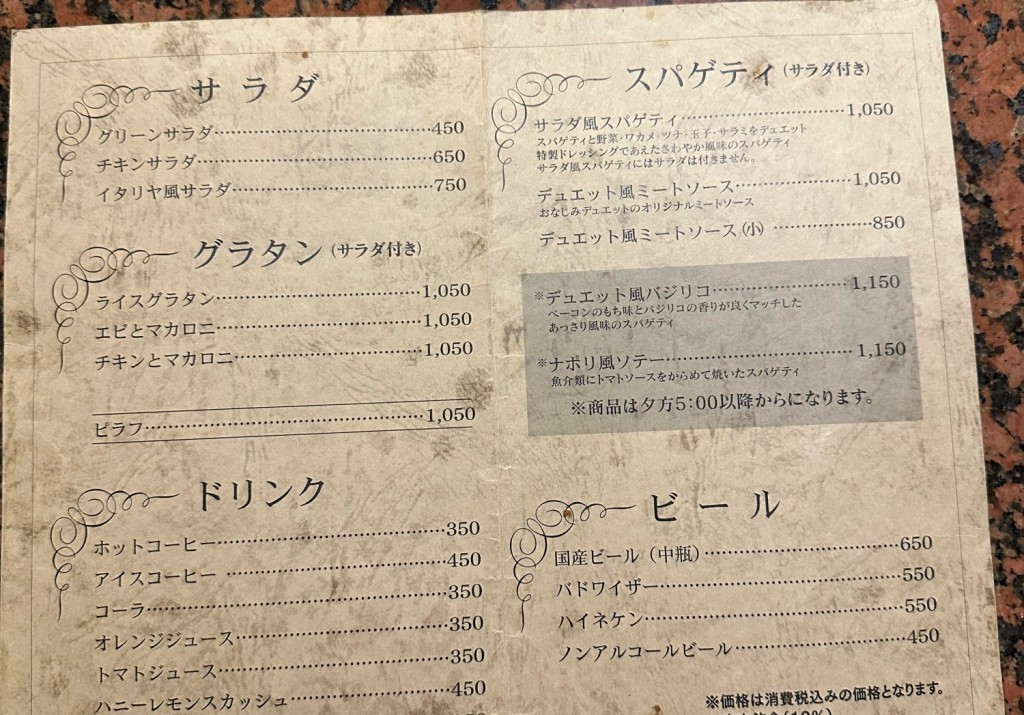 サラダ
グリーンサラダ……450
チキンサラダ……650
イタリヤ風サラダ……750
グラタン(サラダ付き)
ライスグラタン……1,050
エビとマカロニ……1,050
チキンとマカロニ……1,050
ピラフ……1,050
ドリンク
ホットコーヒー……350
アイスコーヒー……450
コーラ……350
オレンジジュース……350
トマトジュース……350
ハニーレモンスカッシュ……450
スパゲティ(サラダ付き)
サラダ風スパゲティ……1,050
スパゲティと野菜・ワカメ・ツナ・玉子・サラミをデュエット
特製ドレッシングであえたさわやか風味のスパゲティ
サラダ風スパゲティにはサラダは付きません。
デュエット風ミートソース……1,050
おなじみデュエットのオリジナルミートソース
デュエット風ミートソース(小)……850
※デュエット風バジリコ……1,150
ベーコンのもち味とバジリコの香りが良くマッチした
あっさり風味のスパゲティ
※ナポリ風ソテー……1,150
魚介類にトマトソースをからめて焼いたスパゲティ
※商品は夕方5:00以降からになります。
ビール
国産ビール(中瓶)……650
バドワイザー……550
ハイネケン……550
ノンアルコールビール……450
※価格は消費税込みの価格となります。